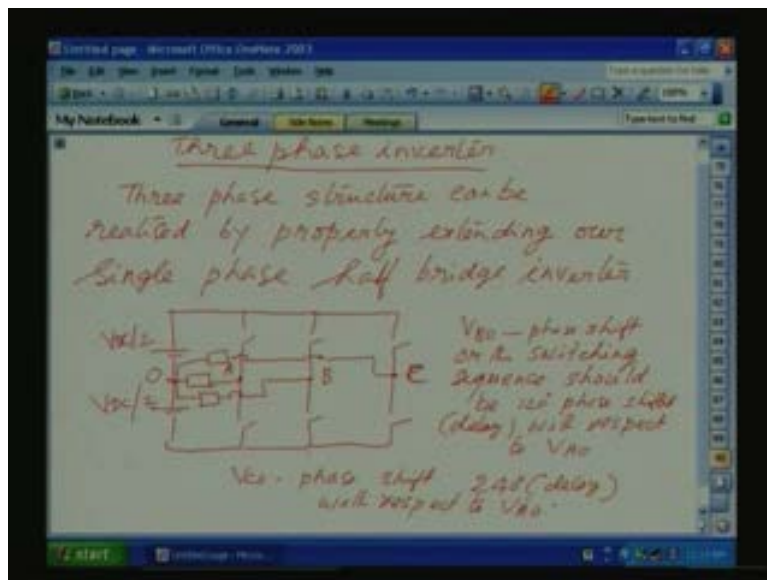 Untitled page - Microsoft Office OneNote 2003
File Edit View Insert Format Tools Window Help
Type a question for help
Back
100%
My Notebook
General
Side Notes
Meetings
Type text to find
Three phase inverter
Three phase structure can be
realised by properly extending our
Single phase half bridge inverter
VDC/2
O
VDC/2
A
B
C
VBO - phase shift
or the switching
sequence should
be 120 phase shift
(delay) with respect
to VAO
VCO - phase shift 240 (delay)
with respect to VAO.
start